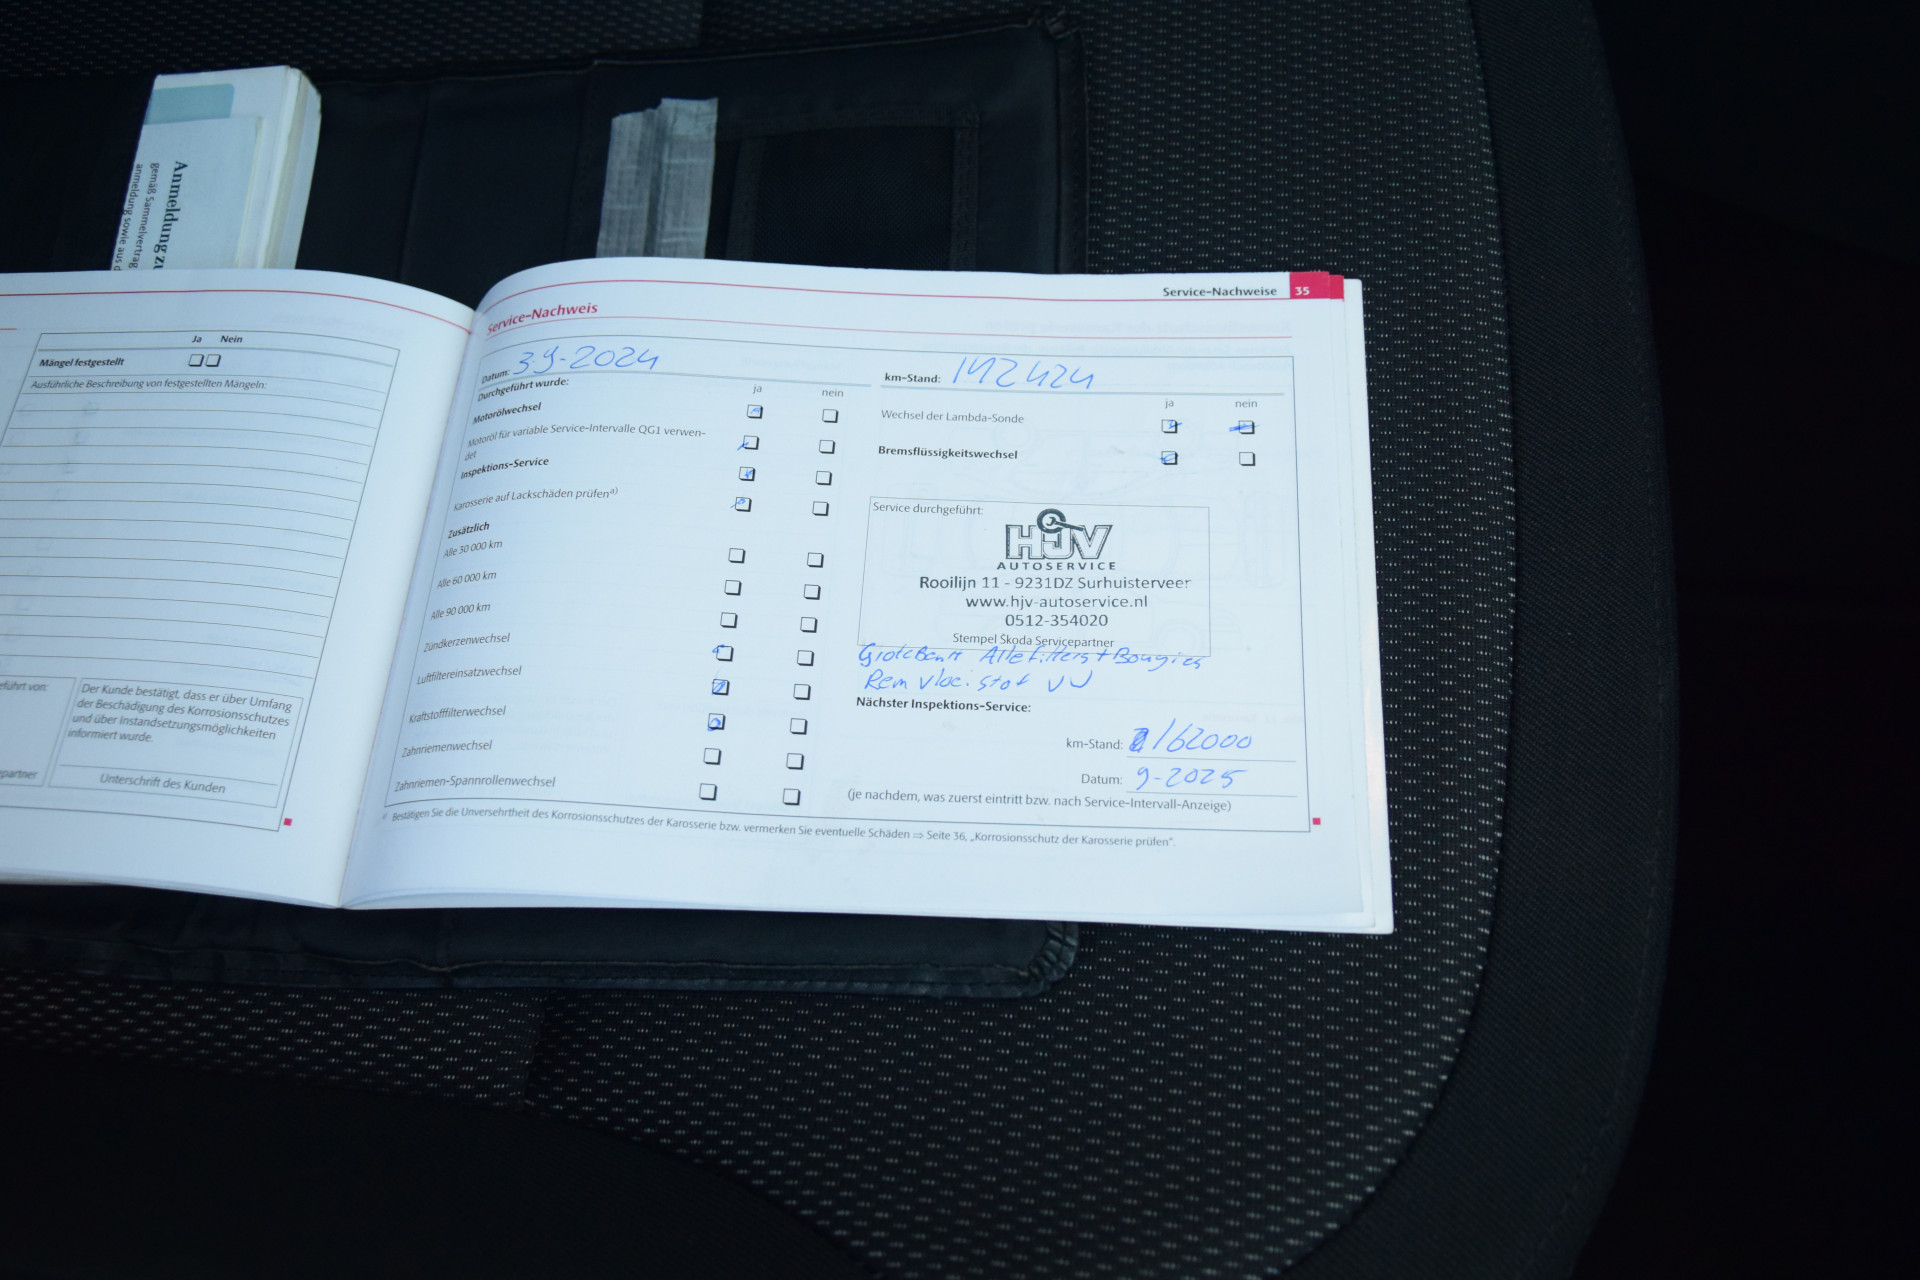 Anmeldung zu
gemäß Sammelvertrag
anmeldung sowie aus d
Ja Nein
Mängel festgestellt
Ausführliche Beschreibung von festgestellten Mängeln:
eführt von:
Der Kunde bestätigt, dass er über Umfang
der Beschädigung des Korrosionsschutzes
und über Instandsetzungsmöglichkeiten
informiert wurde.
partner
Unterschrift des Kunden
Service-Nachweise 35
Service-Nachweis
Datum: 3-9-2024
Durchgeführt wurde:
ja nein
Motorölwechsel
Motoröl für variable Service-Intervalle QG1 verwen-
det
Inspektions-Service
Karosserie auf Lackschäden prüfen a)
Zusätzlich
Alle 30 000 km
Alle 60 000 km
Alle 90 000 km
Zündkerzenwechsel
Luftfiltereinsatzwechsel
Kraftstofffilterwechsel
Zahnriemenwechsel
Zahnriemen-Spannrollenwechsel
km-Stand: 142424
ja nein
Wechsel der Lambda-Sonde
Bremsflüssigkeitswechsel
Service durchgeführt:
HJV
AUTOSERVICE
Rooilijn 11 - 9231DZ Surhuisterveer
www.hjv-autoservice.nl
0512-354020
Stempel Škoda Servicepartner
Alle filters + Bougies
Rem vloeistof VV
Nächster Inspektions-Service:
km-Stand: 162000
Datum: 9-2025
(je nachdem, was zuerst eintritt bzw. nach Service-Intervall-Anzeige)
a) Bestätigen Sie die Unversehrtheit des Korrosionsschutzes der Karosserie bzw. vermerken Sie eventuelle Schäden ⇒ Seite 36, „Korrosionsschutz der Karosserie prüfen“.